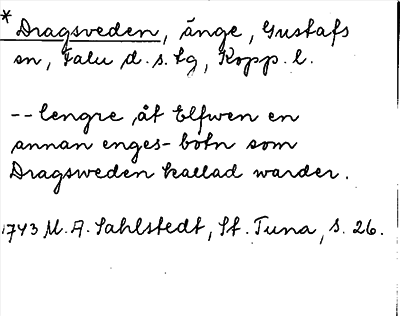 * Dragsveden, änge, Gustafs
sn, Falu d. s. lg, Kopp. l.
-- lengre åt Elfwen en
annan enges-botn som
Dragsweden kallad warder.
1743 M. A. Sahlstedt, St. Tuna, s. 26.